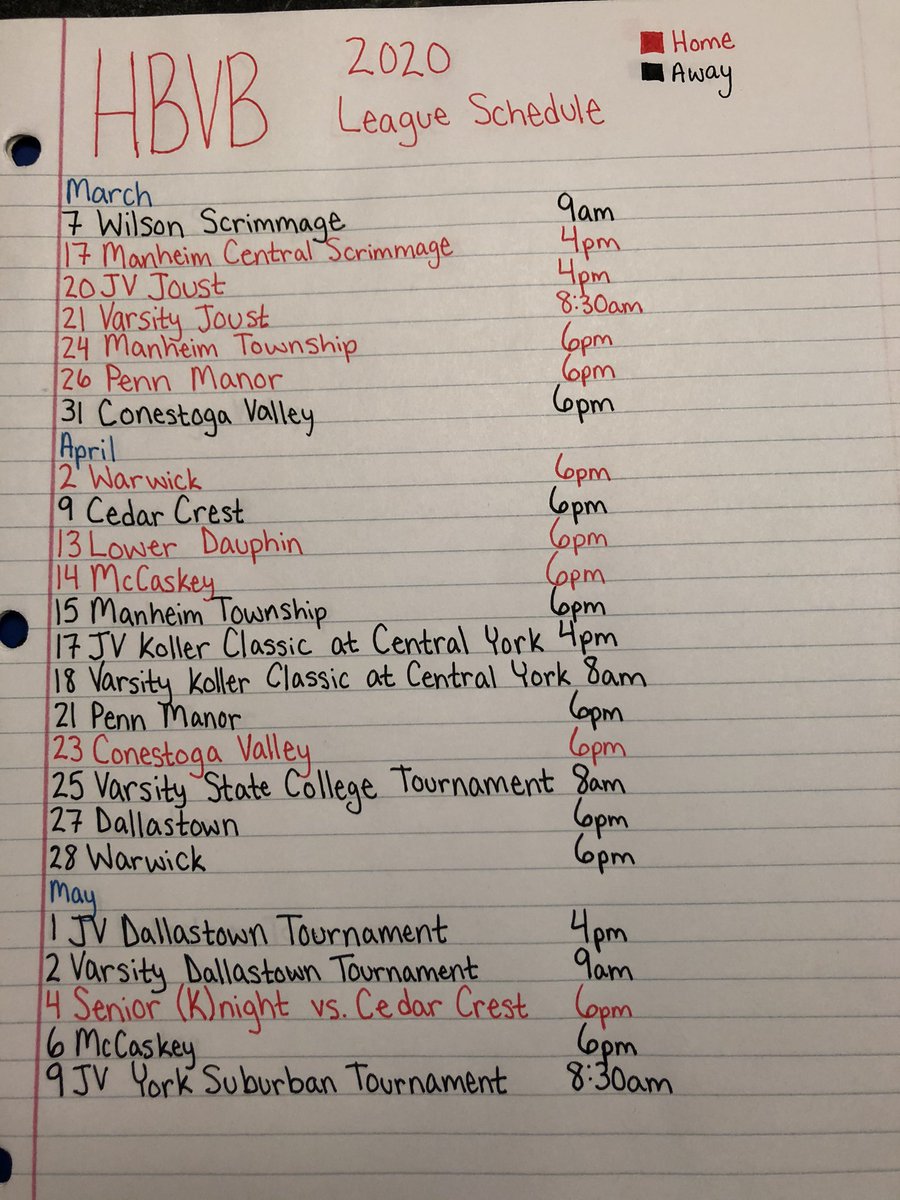 HBVB
2020
League Schedule
Home
Away
March
7 Wilson Scrimmage 9am
17 Manheim Central Scrimmage 4pm
20 JV Joust 4pm
21 Varsity Joust 8:30am
24 Manheim Township 6pm
26 Penn Manor 6pm
31 Conestoga Valley 6pm
April
2 Warwick 6pm
9 Cedar Crest 6pm
13 Lower Dauphin 6pm
14 McCaskey 6pm
15 Manheim Township 6pm
17 JV Koller Classic at Central York 4pm
18 Varsity Koller Classic at Central York 8am
21 Penn Manor 6pm
23 Conestoga Valley 6pm
25 Varsity State College Tournament 8am
27 Dallastown 6pm
28 Warwick 6pm
May
1 JV Dallastown Tournament 4pm
2 Varsity Dallastown Tournament 9am
4 Senior (K)night vs. Cedar Crest 6pm
6 McCaskey 6pm
9 JV York Suburban Tournament 8:30am